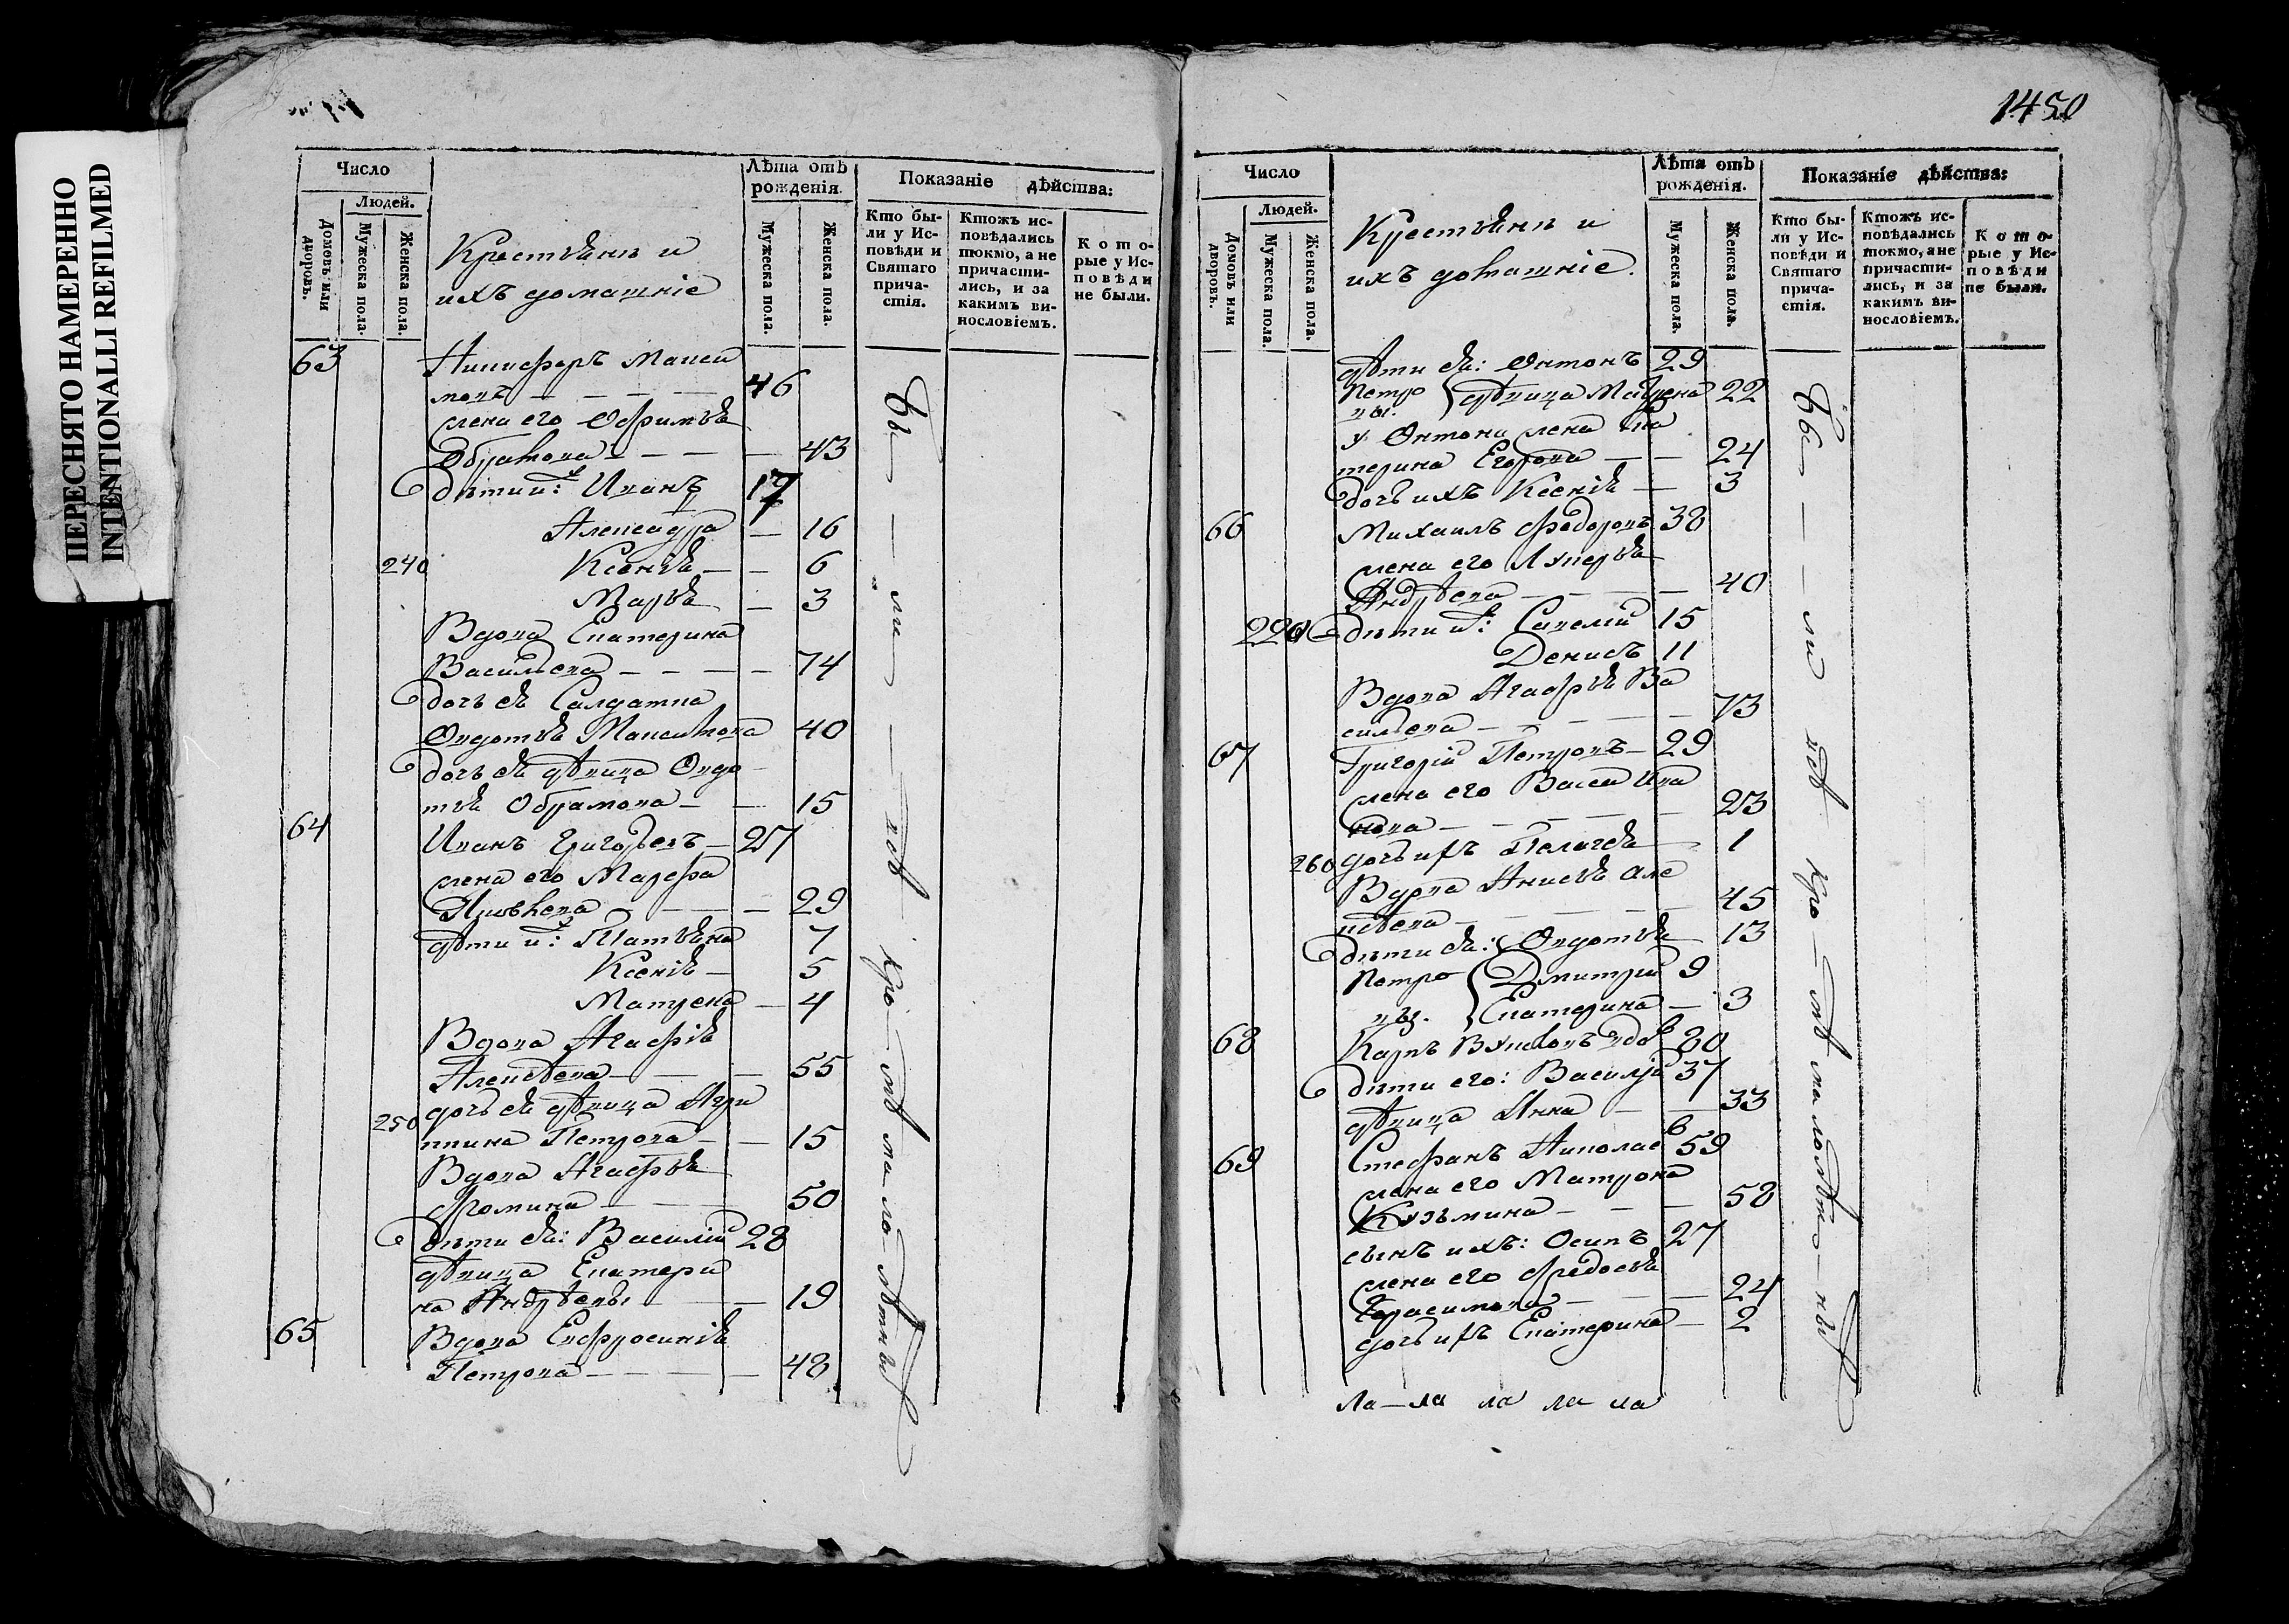 ПЕРЕСНЯТО НАМЕРЕННО
INTENTIONALLI REFILMED
Число
Лѣта отъ рожденія.
Показаніе дѣйства:
Людей.
Домовъ или дворовъ.
Мужеска пола.
Женска пола.
Крестьянъ и
ихъ домашніе
Мужеска пола.
Женска пола.
Кто бы-
ли у Ис-
повѣди и
Святаго
прича-
стія.
Ктожъ ис-
повѣдались
токмо, а не
причасти-
лись, и за
какимъ ви-
нословіемъ.
Кото-
рые у Ис-
повѣди
не были.
63 Никифоръ Макси
мовъ 46
жена его Офимья
Обрамова 43
дѣти их: Иванъ 17
Александра 16
240 Ксенья 6
Марья 3
Вдова Екатерина
Васильева 74
дочь ея Салдатка
Овдотья Максимова 40
дочь ея дѣвица Овдо
тья Обрамова 15
64 Иванъ Григорьевъ 27
жена его Марфа
29
дѣти их: Татьяна 7
Ксенія 5
Матрена 4
Вдова Агафія
Алексѣева 55
250 дочь ея дѣвица Агри
пина Петрова 15
Вдова Агафья
Фомина 50
дѣти ея: Василій 28
дѣвица Екатери
на Андрѣевы 19
65 Вдова Евфросинія
Петрова 48
Бы ли всѣ кро мѣ ма ло лѣтны
1450
Число
Лѣта отъ рожденія.
Показаніе дѣйства:
Людей.
Домовъ или дворовъ.
Мужеска пола.
Женска пола.
Крестьянъ и
ихъ домашніе.
Мужеска пола.
Женска пола.
Кто бы-
ли у Ис-
повѣди и
Святаго
прича-
стія.
Ктожъ ис-
повѣдались
токмо, а не
причасти-
лись, и за
какимъ ви-
нословіемъ.
Кото-
рые у Ис-
повѣди
не были.
дѣти ея: Онтонъ 29
Петро
вы. дѣвица Матрена 22
у Онтона жена Ка
терина Егорова 24
дочь ихъ Ксенія 3
66 Михаилъ Федоровъ 38
жена его Лукерья
Андрѣева 40
220 дѣти их: Савелій 15
Денисъ 11
Вдова Агафья Ва
сильева 73
67 Григорій Петровъ 29
жена его Васса Ива
нова 23
260 дочь ихъ Пелагея 1
Вдова Анисья Але
ксѣева 45
дѣти ея: Овдотья 13
Петро Дмитрій 9
вы. Екатерина 3
68 Карпъ вдов 80
дѣти его: Василій 37
дѣвица Анна 33
69 Стефанъ Николаев 59
жена его Матрона
Кузьмина 58
сынъ ихъ: Осипъ 27
жена его Федосья
Герасимова 24
дочь ихъ Екатерина 2
Бы ли всѣ кро мѣ малолѣт ны
ла ла ла ла ла